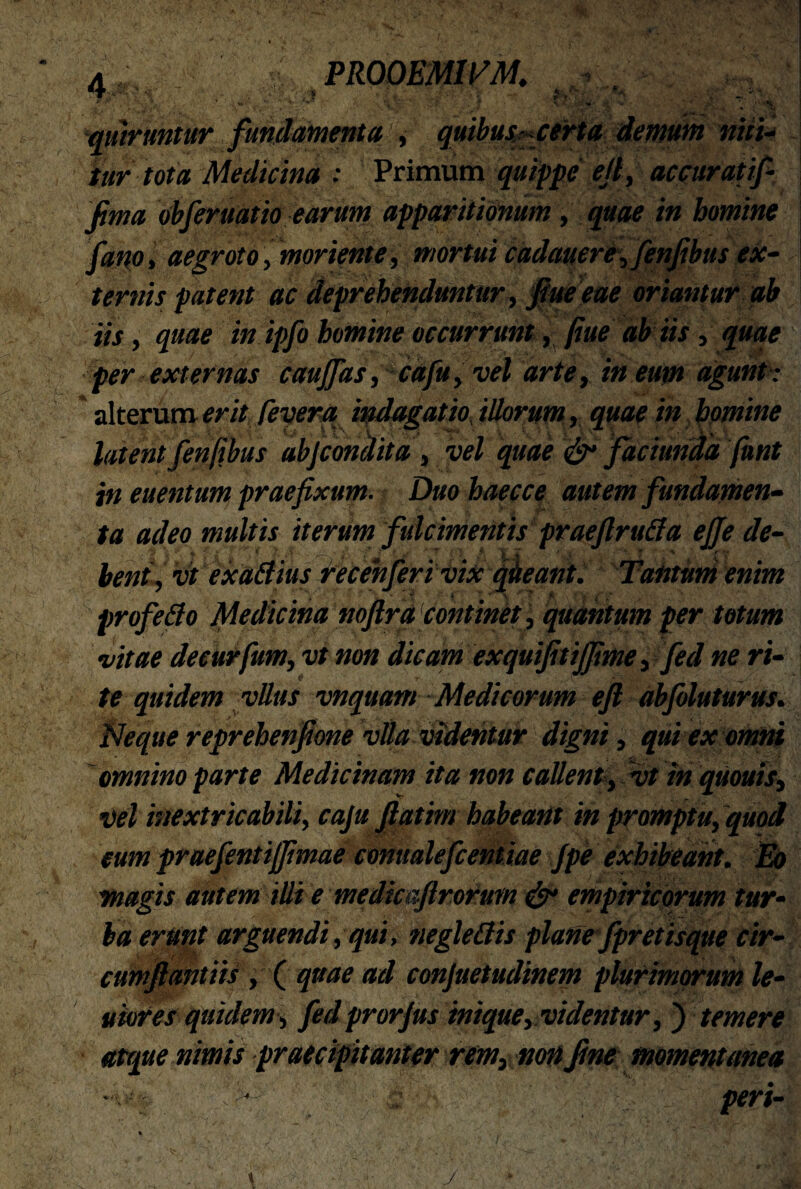 4 PROOEMIVM.
quiruntur fundamenta , quibus certa demum niti-
tur tota Medicina : Primum quippe eſt, accuratiſ-
ſima obſeruatio earum apparitionum , quae in homine
ſano, aegroto, moriente, mortui cadauere, ſenſibus ex-
ternis patent ac deprehenduntur, ſiue eae oriantur ab
iis , quae in ipſo homine occurrunt, ſiue ab iis , quae
per externas cauſſas, caſu, vel arte, in eum agunt:
alterum erit ſevera indagatio illorum, quae in homine
latent ſenſibus abſcondita , vel quae & faciunda ſunt
in euentum praefixum. Duo haecce autem fundamen-
ta adeo multis iterum fulcimentis praeſtructa eſſe de-
bent, vt exactius recenſeri vix queant. Tantum enim
profecto Medicina noſtra continet, quantum per totum
vitae decurſum, vt non dicam exquiſitiſſime, ſed ne ri-
te quidem vllus vnquam Medicorum eſt abſoluturus.
Neque reprehenſione vlla videntur digni, qui ex omni
omnino parte Medicinam ita non callent, vt in quouis,
vel inextricabili, caſu ſtatim habeant in promptu, quod
eum praeſentiſſimae conualeſcentiae ſpe exhibeant. Eo
magis autem illi e medicaſtrorum & empiricorum tur-
ba erunt arguendi, qui, neglectis plane ſpretisque cir-
cumſtantiis , ( quae ad conſuetudinem plurimorum le-
uiores quidem, ſed prorſus inique, videntur, ) temere
atque nimis praecipitanter rem, non ſine momentanea
peri-